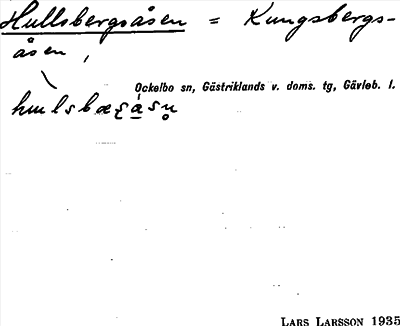 Hullsbergsåsen = Kungsbergs-
åsen,
Ockelbo sn, Gästriklands v. doms. tg, Gävleb. l.
LARS LARSSON 1935